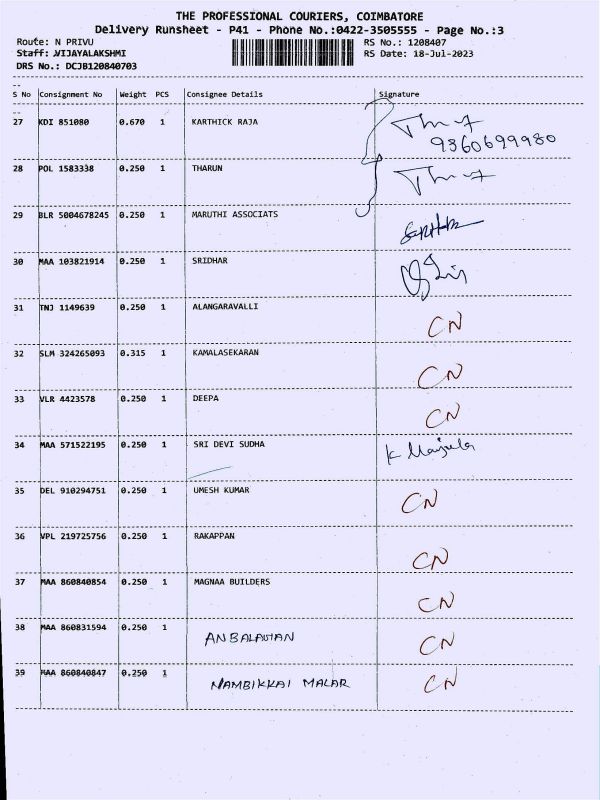 THE PROFESSIONAL COURIERS, COIMBATORE
Delivery Runsheet - P41 - Phone No.:0422-3505555 - Page No.:3
Route: N PRIVU RS No.: 1208407
Staff: VIJAYALAKSHMI RS Date: 18-Jul-2023
DRS No.: DCJB120840703
S No Consignment No Weight PCS Consignee Details Signature
27 KDI 851080 0.670 1 KARTHICK RAJA
9360699980
28 POL 1583338 0.250 1 THARUN
29 BLR 5004678245 0.250 1 MARUTHI ASSOCIATS
30 MAA 103821914 0.250 1 SRIDHAR
31 TNJ 1149639 0.250 1 ALANGARAVALLI CN
32 SLM 324265093 0.315 1 KAMALASEKARAN CN
33 VLR 4423578 0.250 1 DEEPA CN
34 MAA 571522195 0.250 1 SRI DEVI SUDHA K Manjula
35 DEL 910294751 0.250 1 UMESH KUMAR CN
36 VPL 219725756 0.250 1 RAKAPPAN CN
37 MAA 860840854 0.250 1 MAGNAA BUILDERS CN
38 MAA 860831594 0.250 1 CN
39 MAA 860840847 0.250 1 NAMBIKKAI MALAR CN